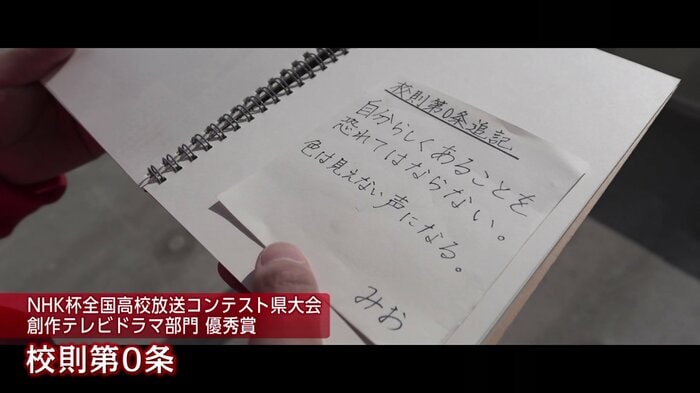 校則第0条追記
自分らしくあることを
恐れてはならない。
色は見えない声になる。
みお
NHK杯全国高校放送コンテスト県大会
創作テレビドラマ部門 優秀賞
校則第0条